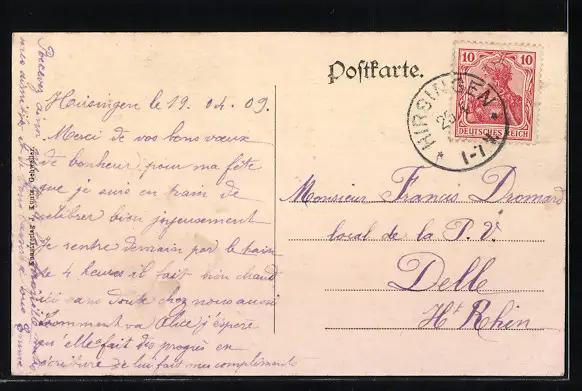 Postkarte.
10 10
DEUTSCHES REICH
HIRSINGEN
Hirsingen le 19. 04. 09.
Merci de vos bons vœux
de bonheur pour ma fête
que je suis en train de
célébrer bien joyeusement
Je rentre demain par le train
de 4 heures il fait bien chaud
ici sans doute chez nous aussi
Comment va Alice j'espère
qu'elle fait des progrès en
écriture de lui fait mes compliments
Monsieur Francis Dromard
local de la P. V.
Delle
Ht Rhin
Recevez ainsi